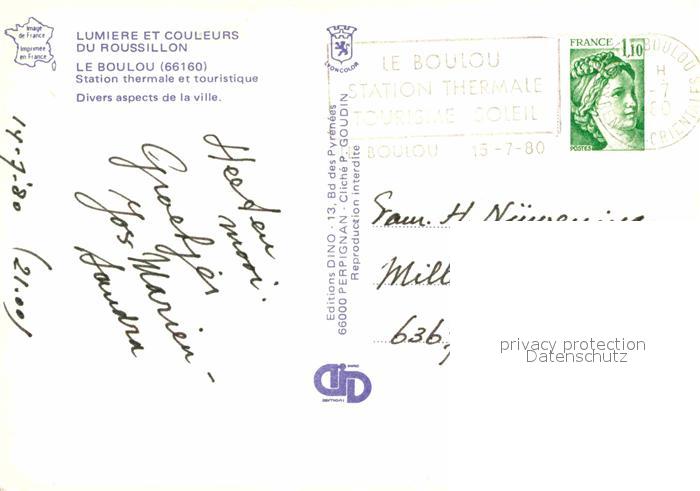 Image
de France
Imprimée
en France
LUMIERE ET COULEURS
DU ROUSSILLON
LE BOULOU (66160)
Station thermale et touristique
Divers aspects de la ville.
14-7-80 (21.00)
Heet en
mooi.
Groetjes
Jos Marien -
Sandra
LYONCOLOR
Editions DINO - 13, Bd des Pyrénées
66000 PERPIGNAN - Cliché P. GOUDIN
Reproduction interdite
DINO
EDITIONS
LE BOULOU
STATION THERMALE
TOURISME SOLEIL
BOULOU 15-7-80
FRANCE 1,10
POSTES
BOULOU
H
-7
80
ORIENTALES
Fam. H
Mill
636
privacy protection
Datenschutz